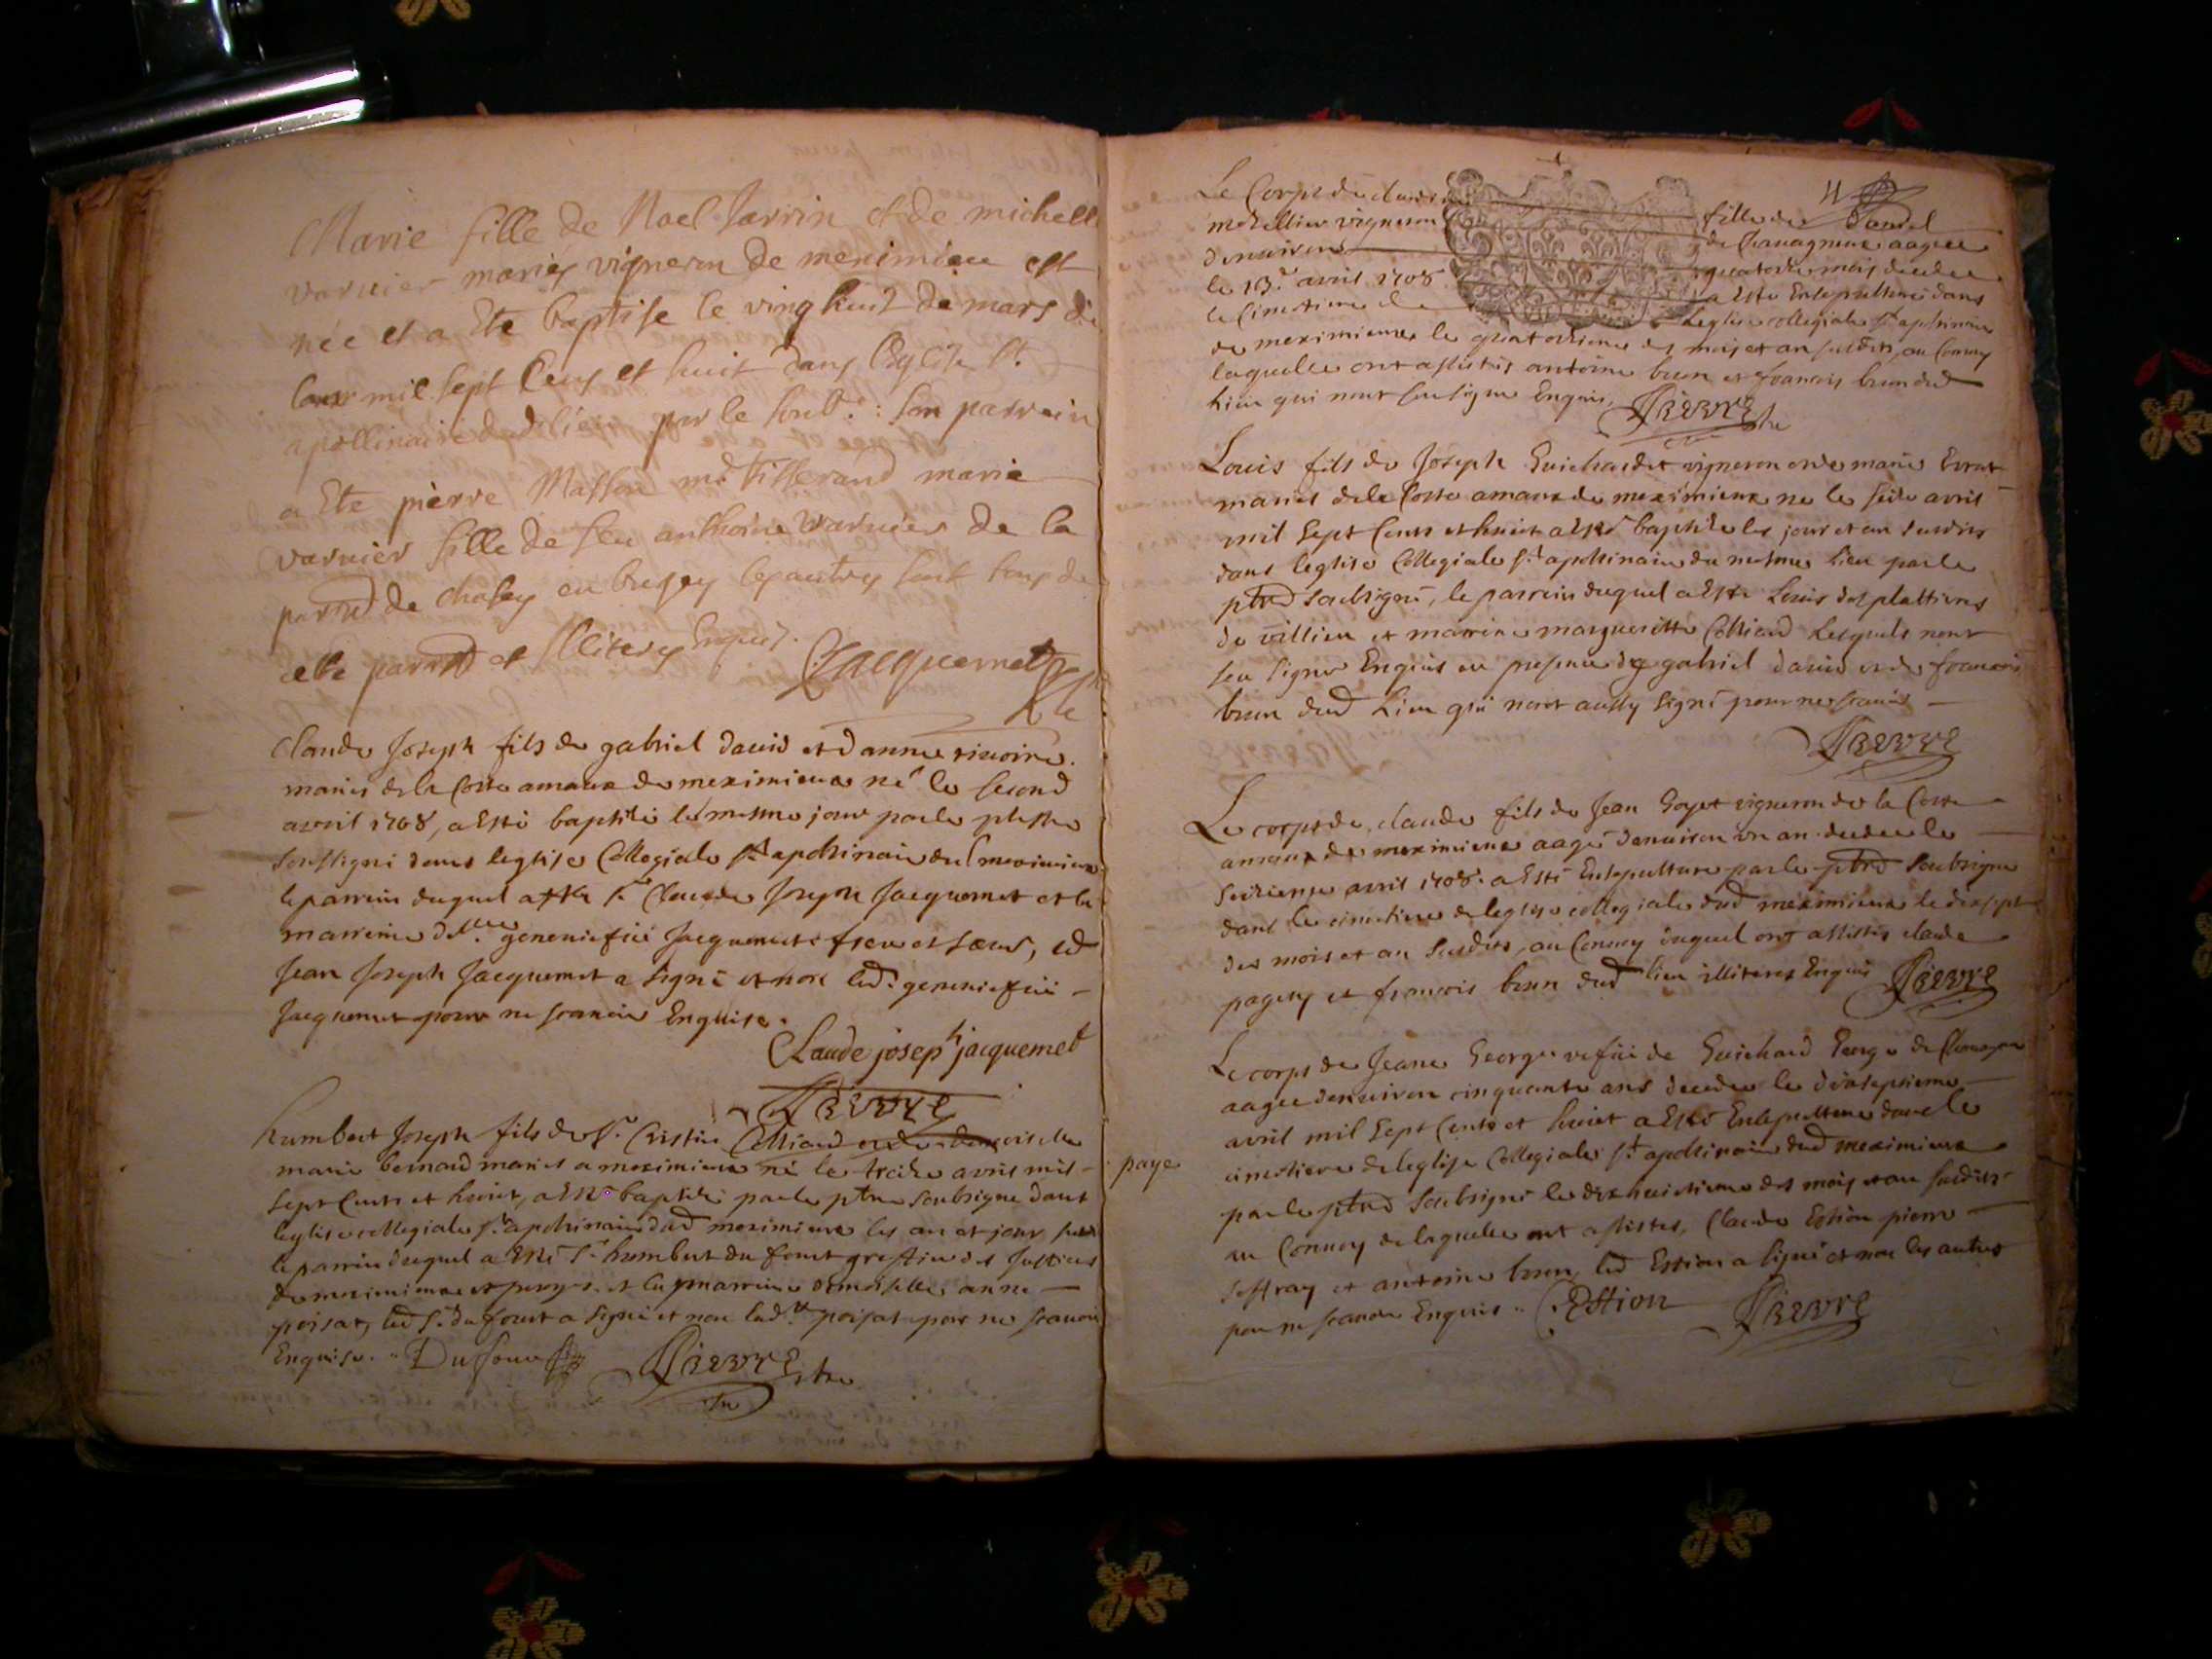 Marie fille de Noel Jarrin et de michell
varnier mariés vigneron de meximieu est
née et a Ete baptise le ving huit de mars de
mil sept Cens et huit dans l'Eglise St.
apollinaire dud lieu par le soub.é: son parrain
a Ete pierre Masson md tisserand marie
varnier fille de feu anthoine varnier de la
parr de en bugey les autres sont tous de
cete parr et illiterez Enquis.
Jacquemet
Claude Joseph fils de gabriel david et danne rivoire
mariés de la Coste amaux de meximieux né le second
avril 1708, a Esté baptisé le mesme jour par le
soussigné dans leglise Collegiale st apolinaire de meximieux
le parrain duquel a esté sr Claude Joseph Jacquemet et la
marreine dlle geneviefve Jacquemet frere et sœur, led
Jean Joseph Jacquemet a signé et non lad. geneviefve
Jacquemet pour ne scavoir Enquise.
Claude joseph jacquemet
Fievre
humbert Joseph fils de sr. Cristin Colliard et de demoiselle
marie bernard mariés a meximieux né le treize avril mil
sept Cents et huict, a esté baptisé par le ptre soubsigné dans
leglise collegiale st apolinaire dud meximieux les an et jour susd
le parrain duquel a Esté sr humbert du four greffier des Justices
de meximieux et et la marraine demoiselle anne
poisat, led sr. du four a signé et non lad.lle poisat pour ne scavoir
Enquise. Dufour Fievre ptre
Le Corps de
vigneron
denviron
le 13.e avril 1708
le Cimetiere de
4
fille de
de Chavagneux aagée
quatorze mois decedee
a Esté Ensepulturé dans
leglise collegiale st apolinaire
de meximieux le quatorzieme des mois et an susdits, au Convoy
laquelle ont assistés antoine brun et francois brun dud
Lieu qui nont seu signer Enquis, Fievre ptre
Louis fils de Joseph Guichardet vigneron et de marie
mariés de la Coste amaux de meximieux né le seize avril
mil sept Cents et huict a esté baptisé les jour et an susdits
dans leglise Collegiale st apolinaire du mesme Lieu par le
ptre soubsigné, le parrain duquel a Esté Louis desplattieres
de villieu et marrine margueritte Colliard Lesquels nont
seu signer Enquis en presence de gabriel david et de francois
brun dud Lieu qui nont aussy signé pour ne scavoir
Fievre
Le corps de claude fils de Jean Goyet vigneron de la Coste
amaux de meximieux aagé denviron un an decedé le
seizieme avril 1708. a Esté Ensepulturé par le ptre soubsigné
dans le cimetiere de leglise collegiale dud meximieux le dixsept
des mois et an susdits, au Convoy duquel ont assistés claude
pagety et francois brun dud lieu illiteres Enquis Fievre
Le corps de Jeane George vefve de Guichard George de
aagee denviron cinquante ans decedee le dixseptieme
avril mil sept Cents et huict a Esté Ensepulturé dans le
paye
cimetiere de leglise Collegiale st apolinaire dud meximieux
par le ptre soubsigné le dixhuictieme des mois et an susdits
au Convoy de laquelle ont assistes, Claude Estion pierre
et antoine brun, led Estion a signé et non les autres
pour ne scavoir Enquis. Estion Fievre